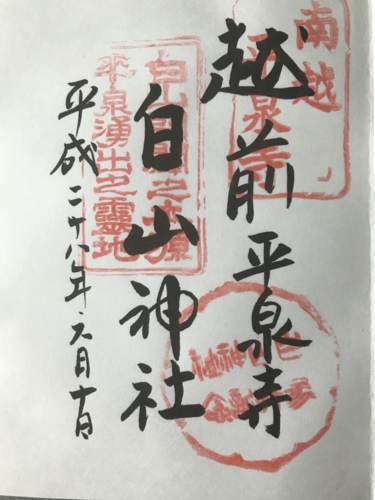 越前平泉寺
白山神社
平成二十八年六月十日
南越
平泉寺
平泉湧出之靈地